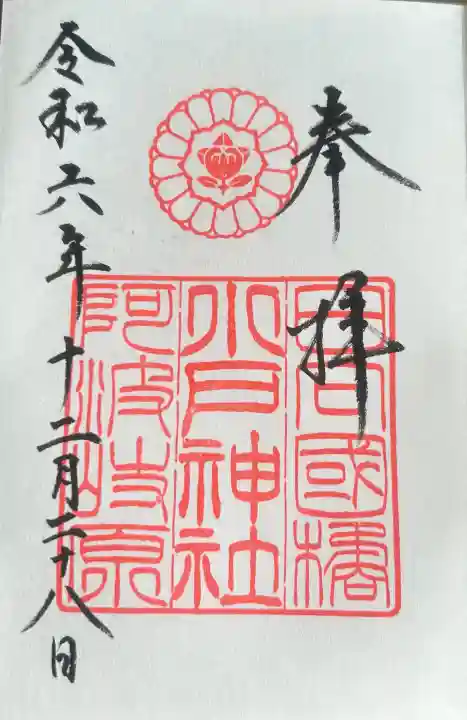 奉拝
日向國橘
小戸神社
阿波岐原
令和六年十二月二十八日